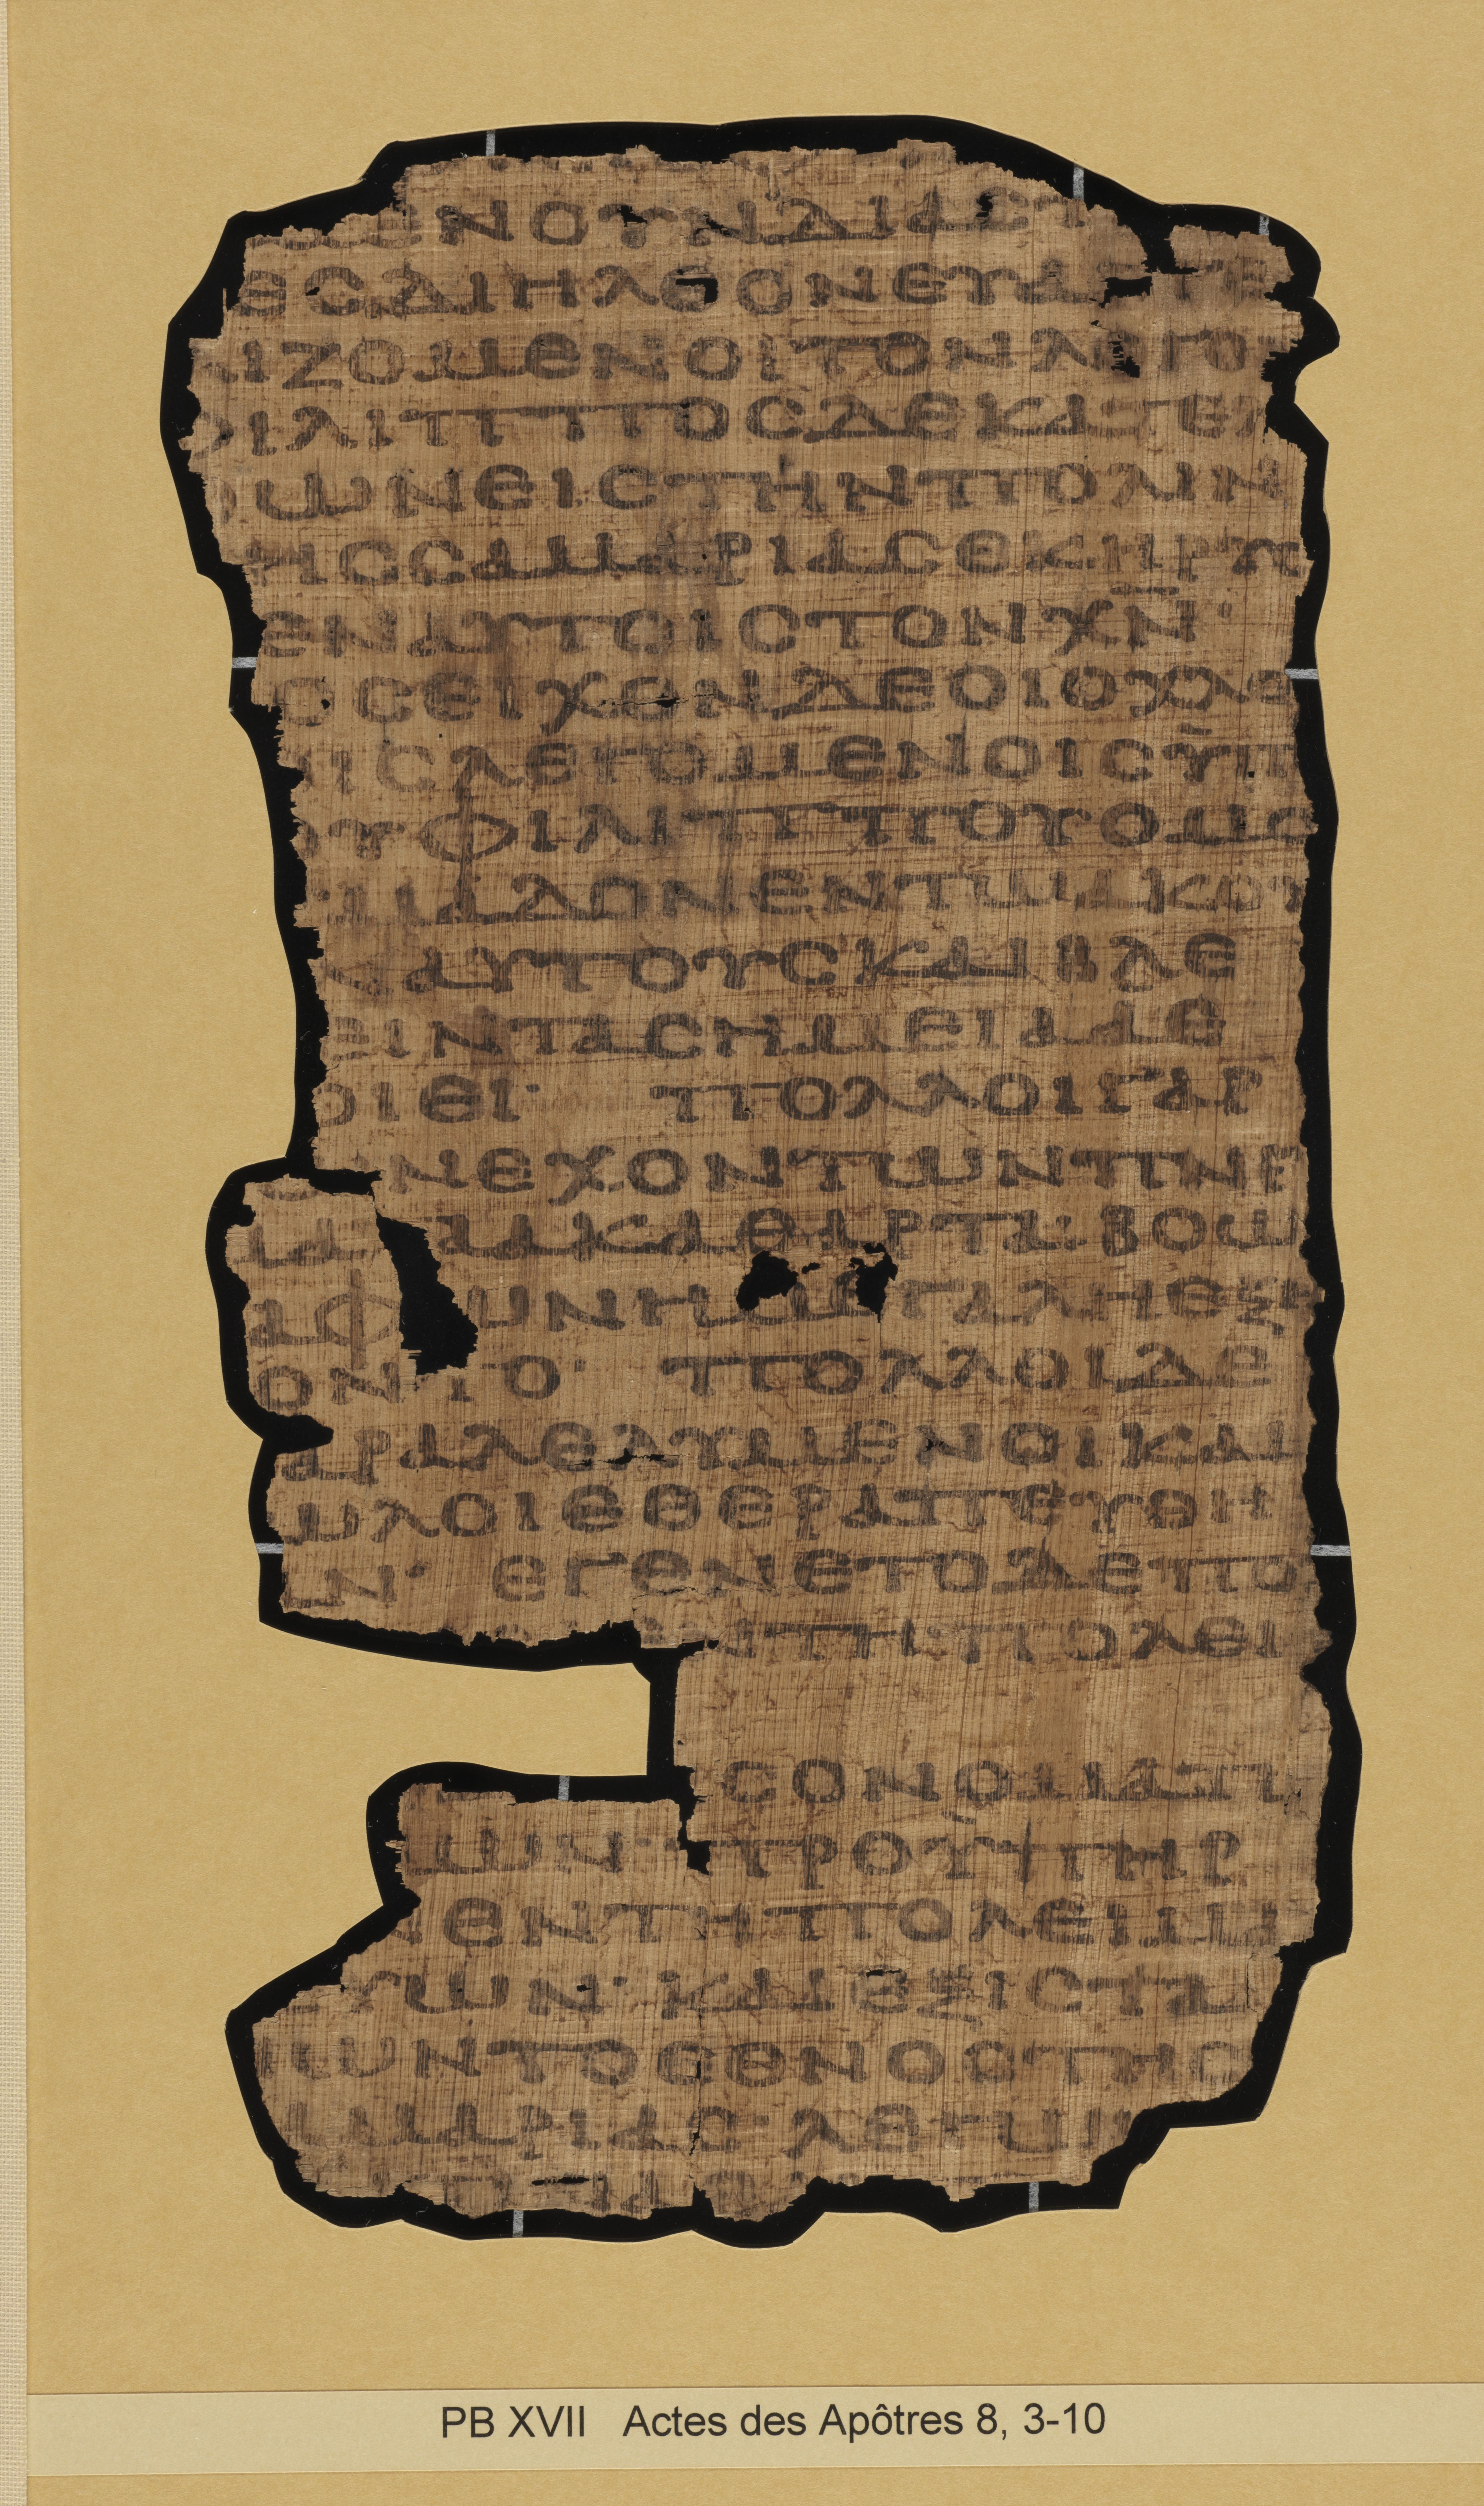 ΕΝΟΥΝΔΙΑΣΠ
ΕСΔΙΗΛΘΟΝΕΥΑΓΓΕ
ΛΙΖΟΜΕΝΟΙΤΟΝΛΟΓΟ
ΦΙΛΙΠΠΟСΔΕΚΑΤΕΛ
ΘΩΝΕΙСΤΗΝΠΟΛΙΝ
ΤΗССΑΜΑΡΙΑСΕΚΗΡΥС
ΕΝΑΥΤΟΙСΤΟΝΧΝ·
ΟСΕΙΧΟΝΔΕΟΙΟΧΛΟ
ΟΙСΛΕΓΟΜΕΝΟΙСΥΠ
ΟΥΦΙΛΙΠΠΟΥΟΜΟ
ΘΥΜΑΔΟΝΕΝΤΩΑΚΟΥ
ΑΥΤΟΥСΚΑΙΒΛΕ
ΕΙΝΤΑСΗΜΕΙΑΑΕ
ΟΙΕΙ· ΠΟΛΛΟΙΓΑΡ
ΩΝΕΧΟΝΤΩΝΠΝΕ
ΜΑΤΑΑΚΑΘΑΡΤΑ·ΒΟΩ
ΑΦΩΝΗΜΕΓΑΛΗΕΞΗ
ΟΝΤΟ· ΠΟΛΛΟΙΔΕ
ΑΡΑΛΕΛΥΜΕΝΟΙΚΑΙ
ΩΛΟΙΕΘΕΡΑΠΕΥΘΗ
ΑΝ· ΕΓΕΝΕΤΟΔΕΠΟ
ΕΝΤΗΠΟΛΕΙ
СΟΝΟΜΑΤΙ
ΜΩΝ·ΠΡΟΥΠΗΡ
ΕΝΤΗΠΟΛΕΙΜΑ
ΕΥΩΝ·ΚΑΙΕΞΙСΤΑ
ΝΩΝΤΟΕΘΝΟСΤΗС
ΑΜΑΡΙΑС·ΛΕΓΩΝ
PB XVII Actes des Apôtres 8, 3-10